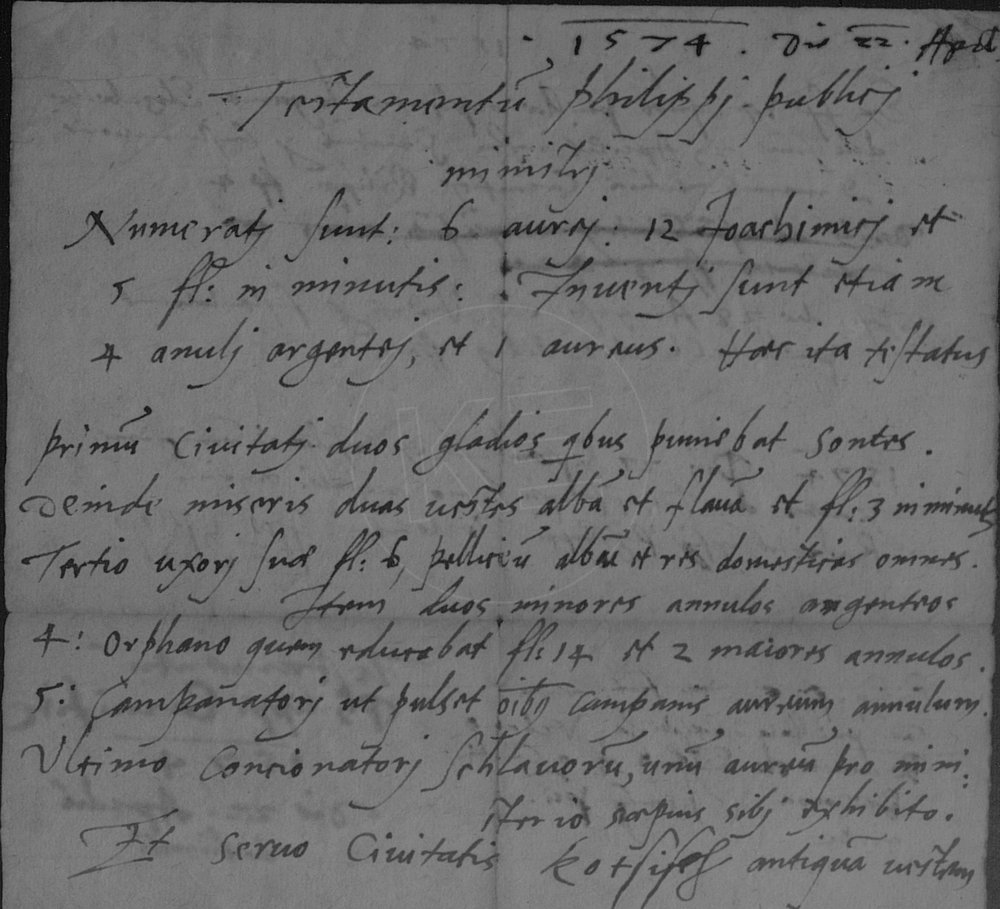 1574. Die 22. Apd
Testamentū philippj publicj
minitrj
Numeratj sunt: 6 aurej: 12 Joachimicj et
5 fl: in minutis: Inventj sunt etiam
4 anulj argentej, et 1 aureus. Haec ita testatus
primū Civitatj duos gladios qbus puniebat sontes.
Deinde miseris duas vestes albā et flavā et fl: 3 in minutis
Tertio uxorj suæ fl: 6, pelliceū albū et res domesticas omnes.
Item duos minores annulos argenteos
4: Orphano quem educabat fl: 14 et 2 maiores annulos.
5: Campanatorj ut pulset oībꝯ campanis aureum annulum.
Ultimo Concionatorj Schlavorū, unū aureū pro mini:
sterio sæpius sibj exhibito.
Et servo Civitatis antiquā vestem
KE